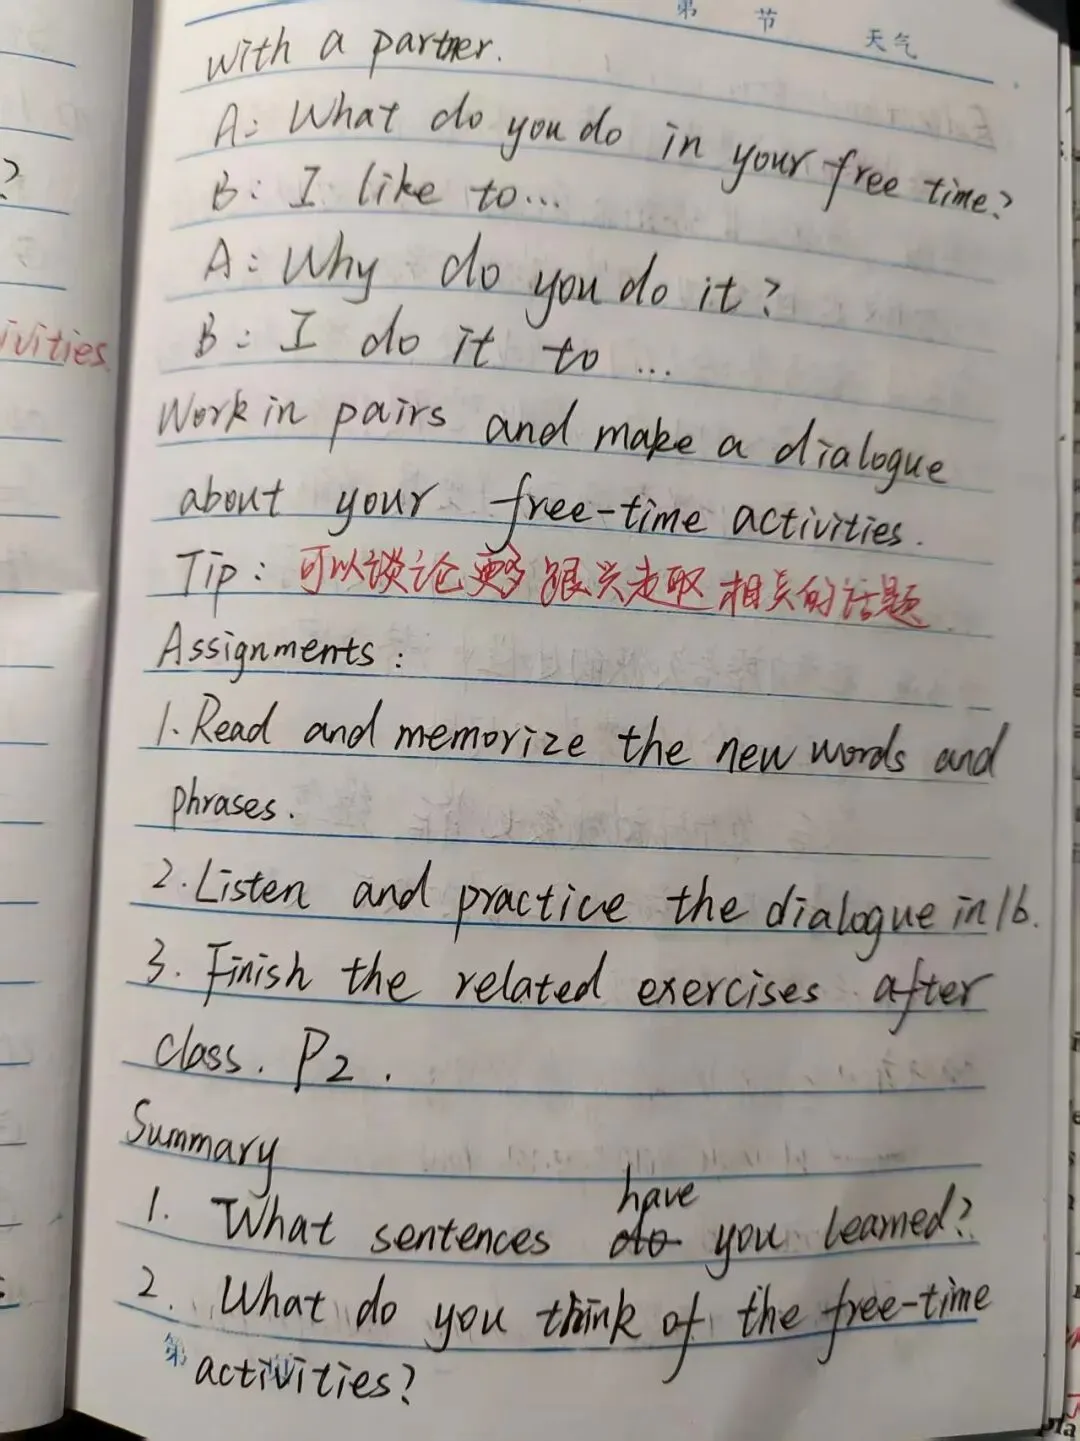 第 节 天气
with a partner.
A: What do you do in your free time?
B: I like to...
A: Why do you do it?
B: I do it to ...
ivities
Work in pairs and make a dialogue
about your free-time activities.
Tip: 可以谈论更多跟兴趣相关的话题
Assignments:
1. Read and memorize the new words and
phrases.
2. Listen and practice the dialogue in 1b.
3. Finish the related exercises after
class. P2.
Summary
have
1. What sentences do you learned?
2. What do you think of the free-time
第
activities?